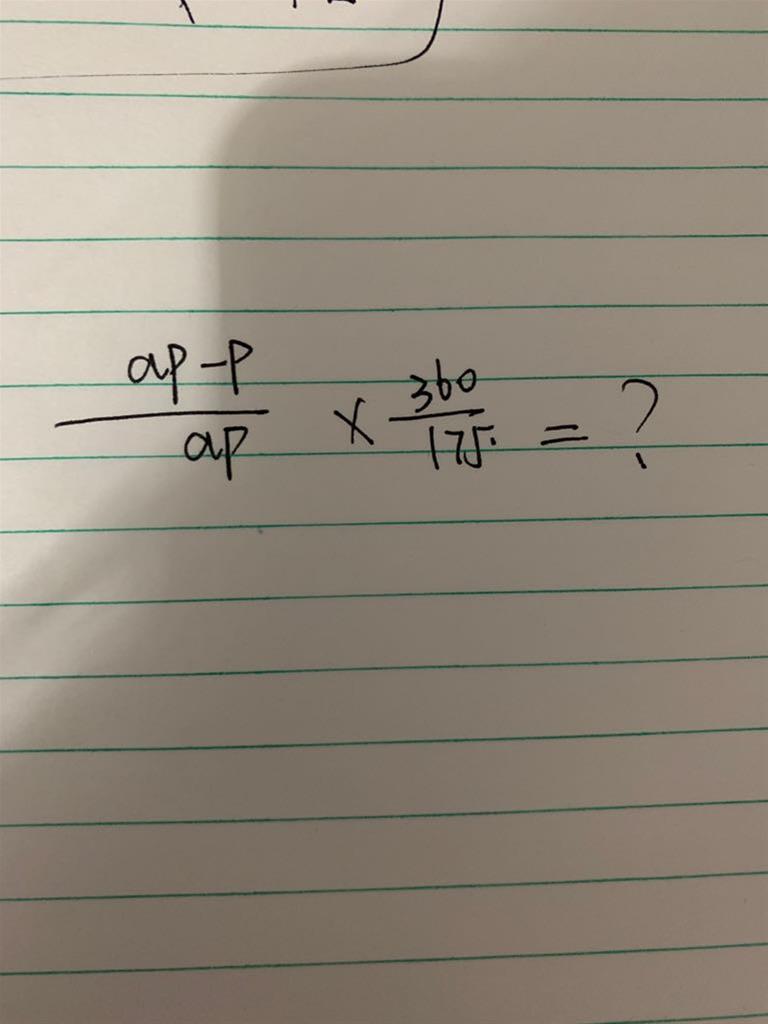 ap-p
ap
× 360
175 = ?